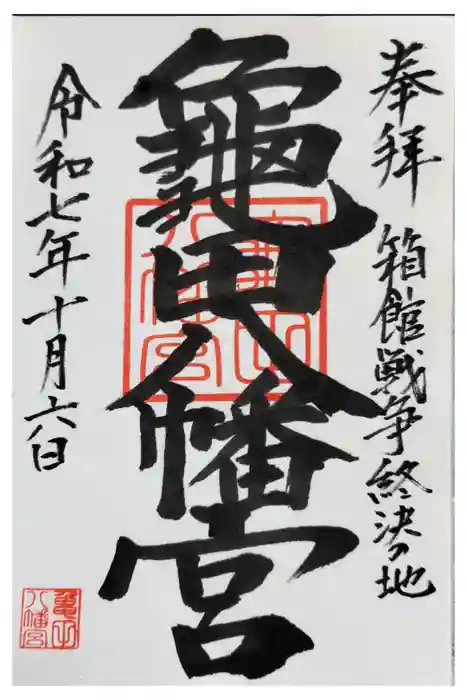 奉拝 箱館戦争終決の地
龜田八幡宮
令和七年十月六日
龜田
八幡宮
龜田
八幡宮